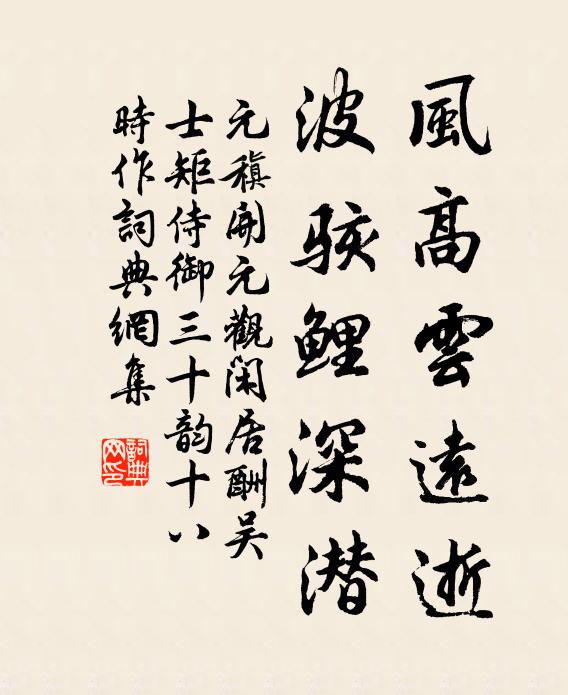 風高雲遠逝
波骇鲤深潜
元稹開元觀閑居酬吴
士矩侍御三十韵十八
時作詞典網集
詞典网印